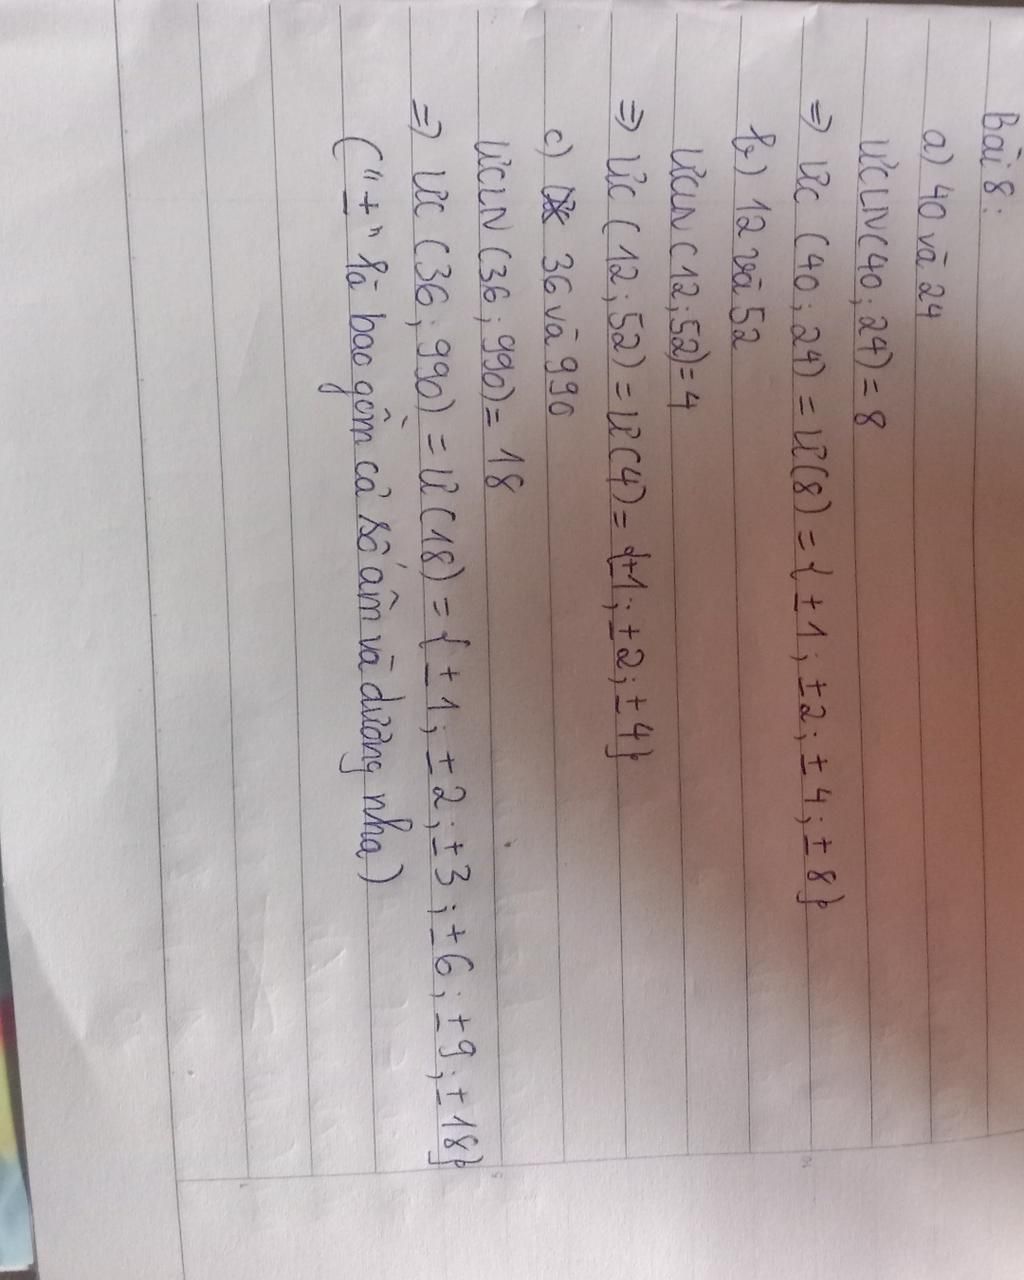 Bài 8:
a) 40 và 24
ƯCLN(40; 24) = 8
=> ƯC (40; 24) = Ư(8) = {±1; ±2; ±4; ±8}
b) 12 và 52
ƯCLN (12; 52) = 4
=> ƯC (12; 52) = Ư(4) = {±1; ±2; ±4}
c) 36 và 990
ƯCLN (36; 990) = 18
=> ƯC (36; 990) = Ư(18) = {±1; ±2; ±3; ±6; ±9; ±18}
("±" là bao gồm cả số âm và dương nha)